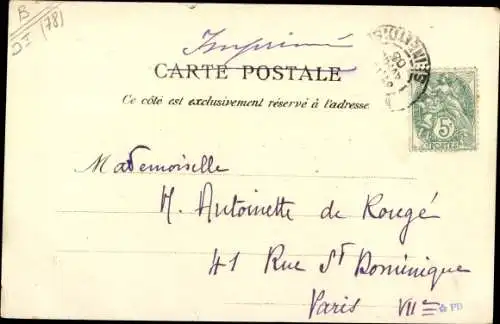 B
(78)
Imprimé
CARTE POSTALE
Ce côté est exclusivement réservé à l'adresse
5c
POSTES
Mademoiselle
M. Antoinette de Rougé
41 Rue St Dominique
Paris VIIe
PD